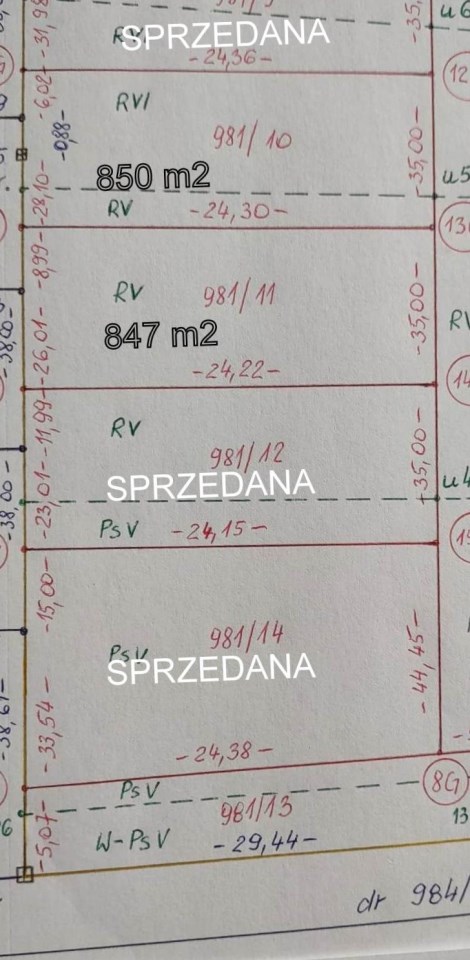 -31,98
-35,
u6
SPRZEDANA
-24,36-
12
-6,02-
RVI
-0,88-
981/10
-35,00-
850 m2
u5
-28,10-
RV
-24,30-
13
-8,99-
RV
981/11
-35,00-
RV
-38,00-
847 m2
-26,01-
-24,22-
14
-11,99-
RV
981/12
-35,00-
SPRZEDANA
u4
-38,00-
-23,01-
PsV
-24,15-
15
-15,00-
981/14
PsV
SPRZEDANA
-44,45-
-38,61-
-33,54-
-24,38-
PsV
8G
981/13
13
-5,07-
W-PsV
-29,44-
dr 984/